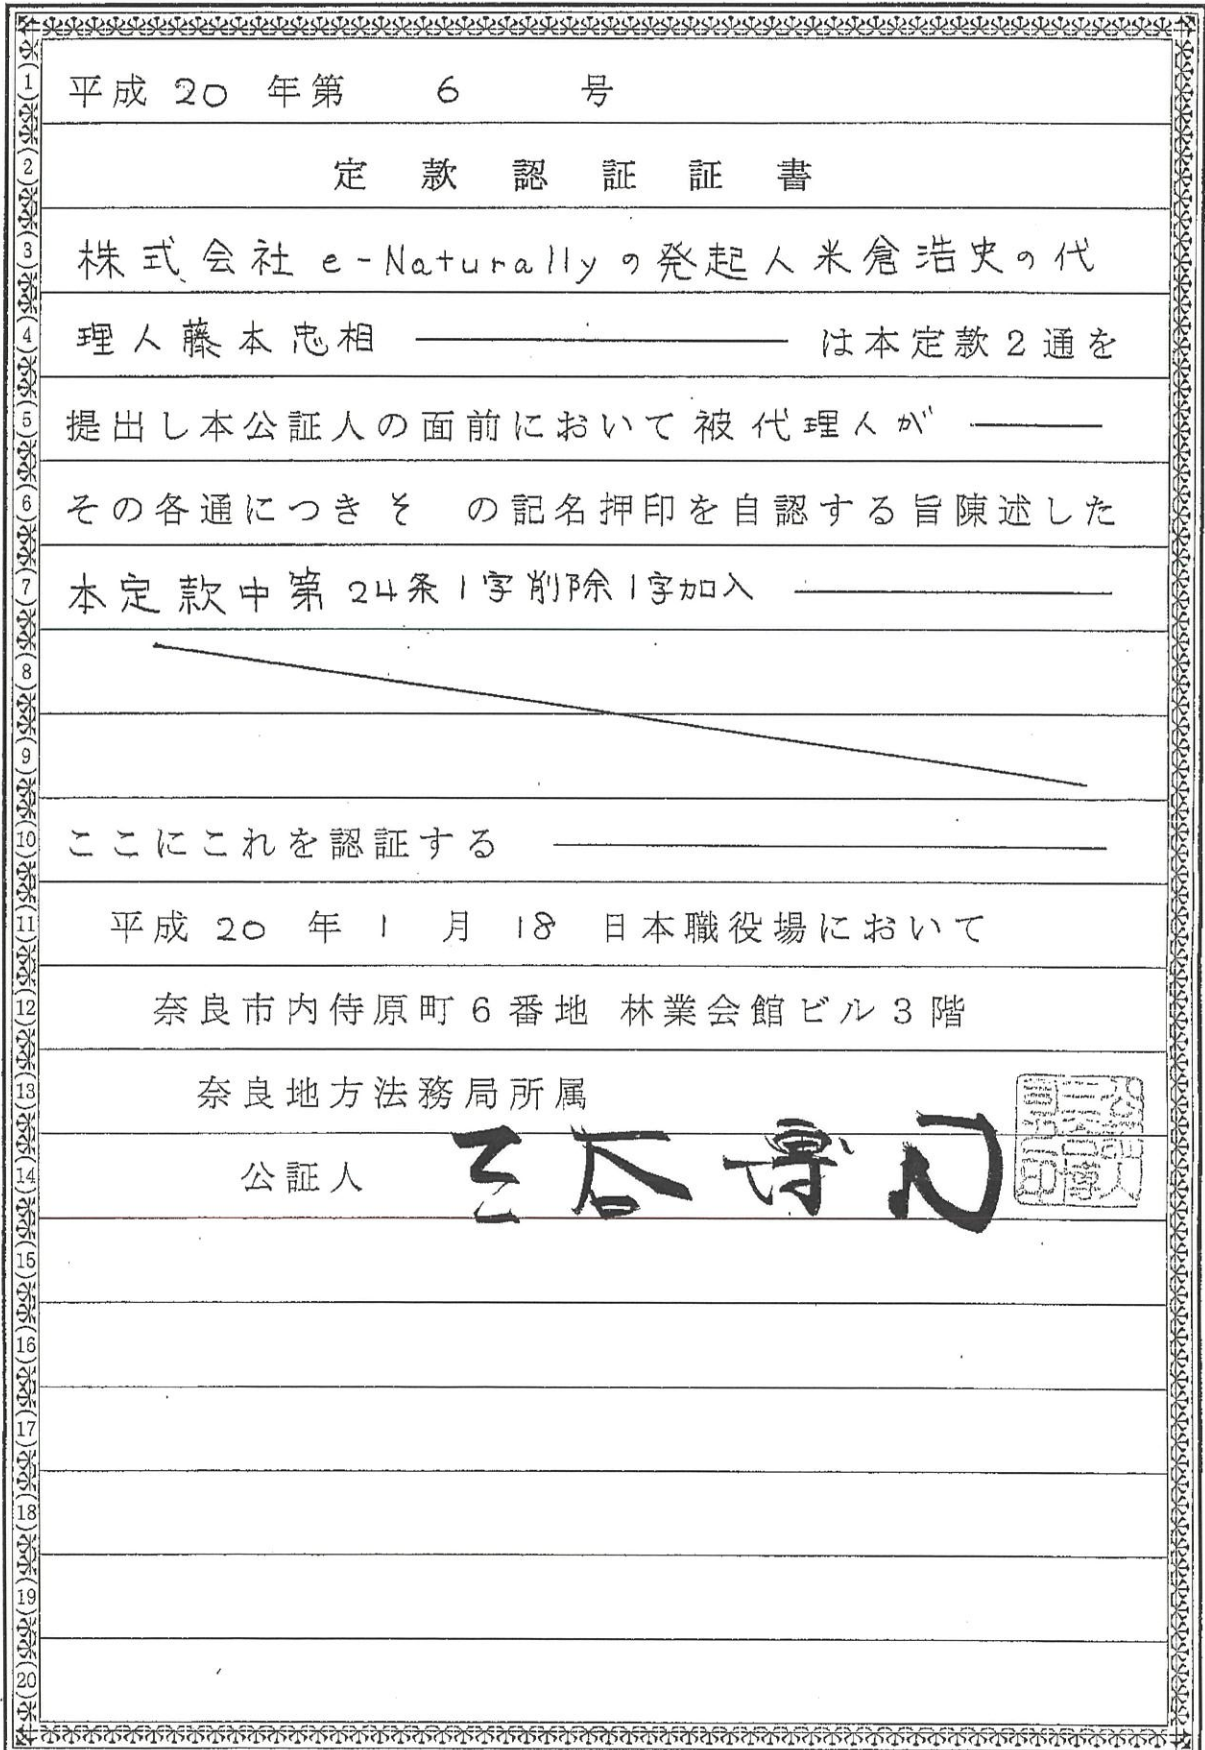 平成 20 年第 6 号
定款認証証書
株式会社 e-Naturallyの発起人米倉浩史の代
理人藤本忠相 は本定款2通を
提出し本公証人の面前において被代理人が
その各通につきそ の記名押印を自認する旨陳述した
本定款中第24条1字削除1字加入
ここにこれを認証する
平成 20 年 1 月 18 日本職役場において
奈良市内侍原町6番地 林業会館ビル3階
奈良地方法務局所属
公証人
(1)
(2)
(3)
(4)
(5)
(6)
(7)
(8)
(9)
(10)
(11)
(12)
(13)
(14)
(15)
(16)
(17)
(18)
(19)
(20)